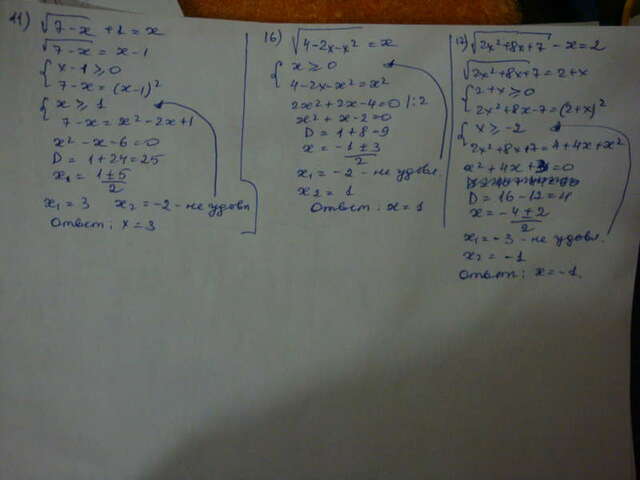 11) √(7-x) + 1 = x
√(7-x) = x-1
{ x-1 ≥ 0
7-x = (x-1)²
{ x ≥ 1
7-x = x² - 2x + 1
x² - x - 6 = 0
D = 1+24 = 25
x₁ = (1±5)/2
x₁ = 3 x₂ = -2 - не удовл
Ответ: x = 3
16) √(4-2x-x²) = x
{ x ≥ 0
4-2x-x² = x²
2x²+2x-4=0 /:2
x²+x-2=0
D = 1+8=9
x = (-1±3)/2
x₁ = -2 - не удовл.
x₂ = 1
Ответ: x = 1
17) √(2x²+8x+7) - x = 2
√(2x²+8x+7) = 2+x
{ 2+x ≥ 0
2x²+8x-7=(2+x)²
{ x ≥ -2
2x²+8x+7=4+4x+x²
x²+4x+3=0
D = 16-12=4
x = (-4±2)/2
x₁ = -3 - не удовл.
x₂ = -1
Ответ: x = -1.